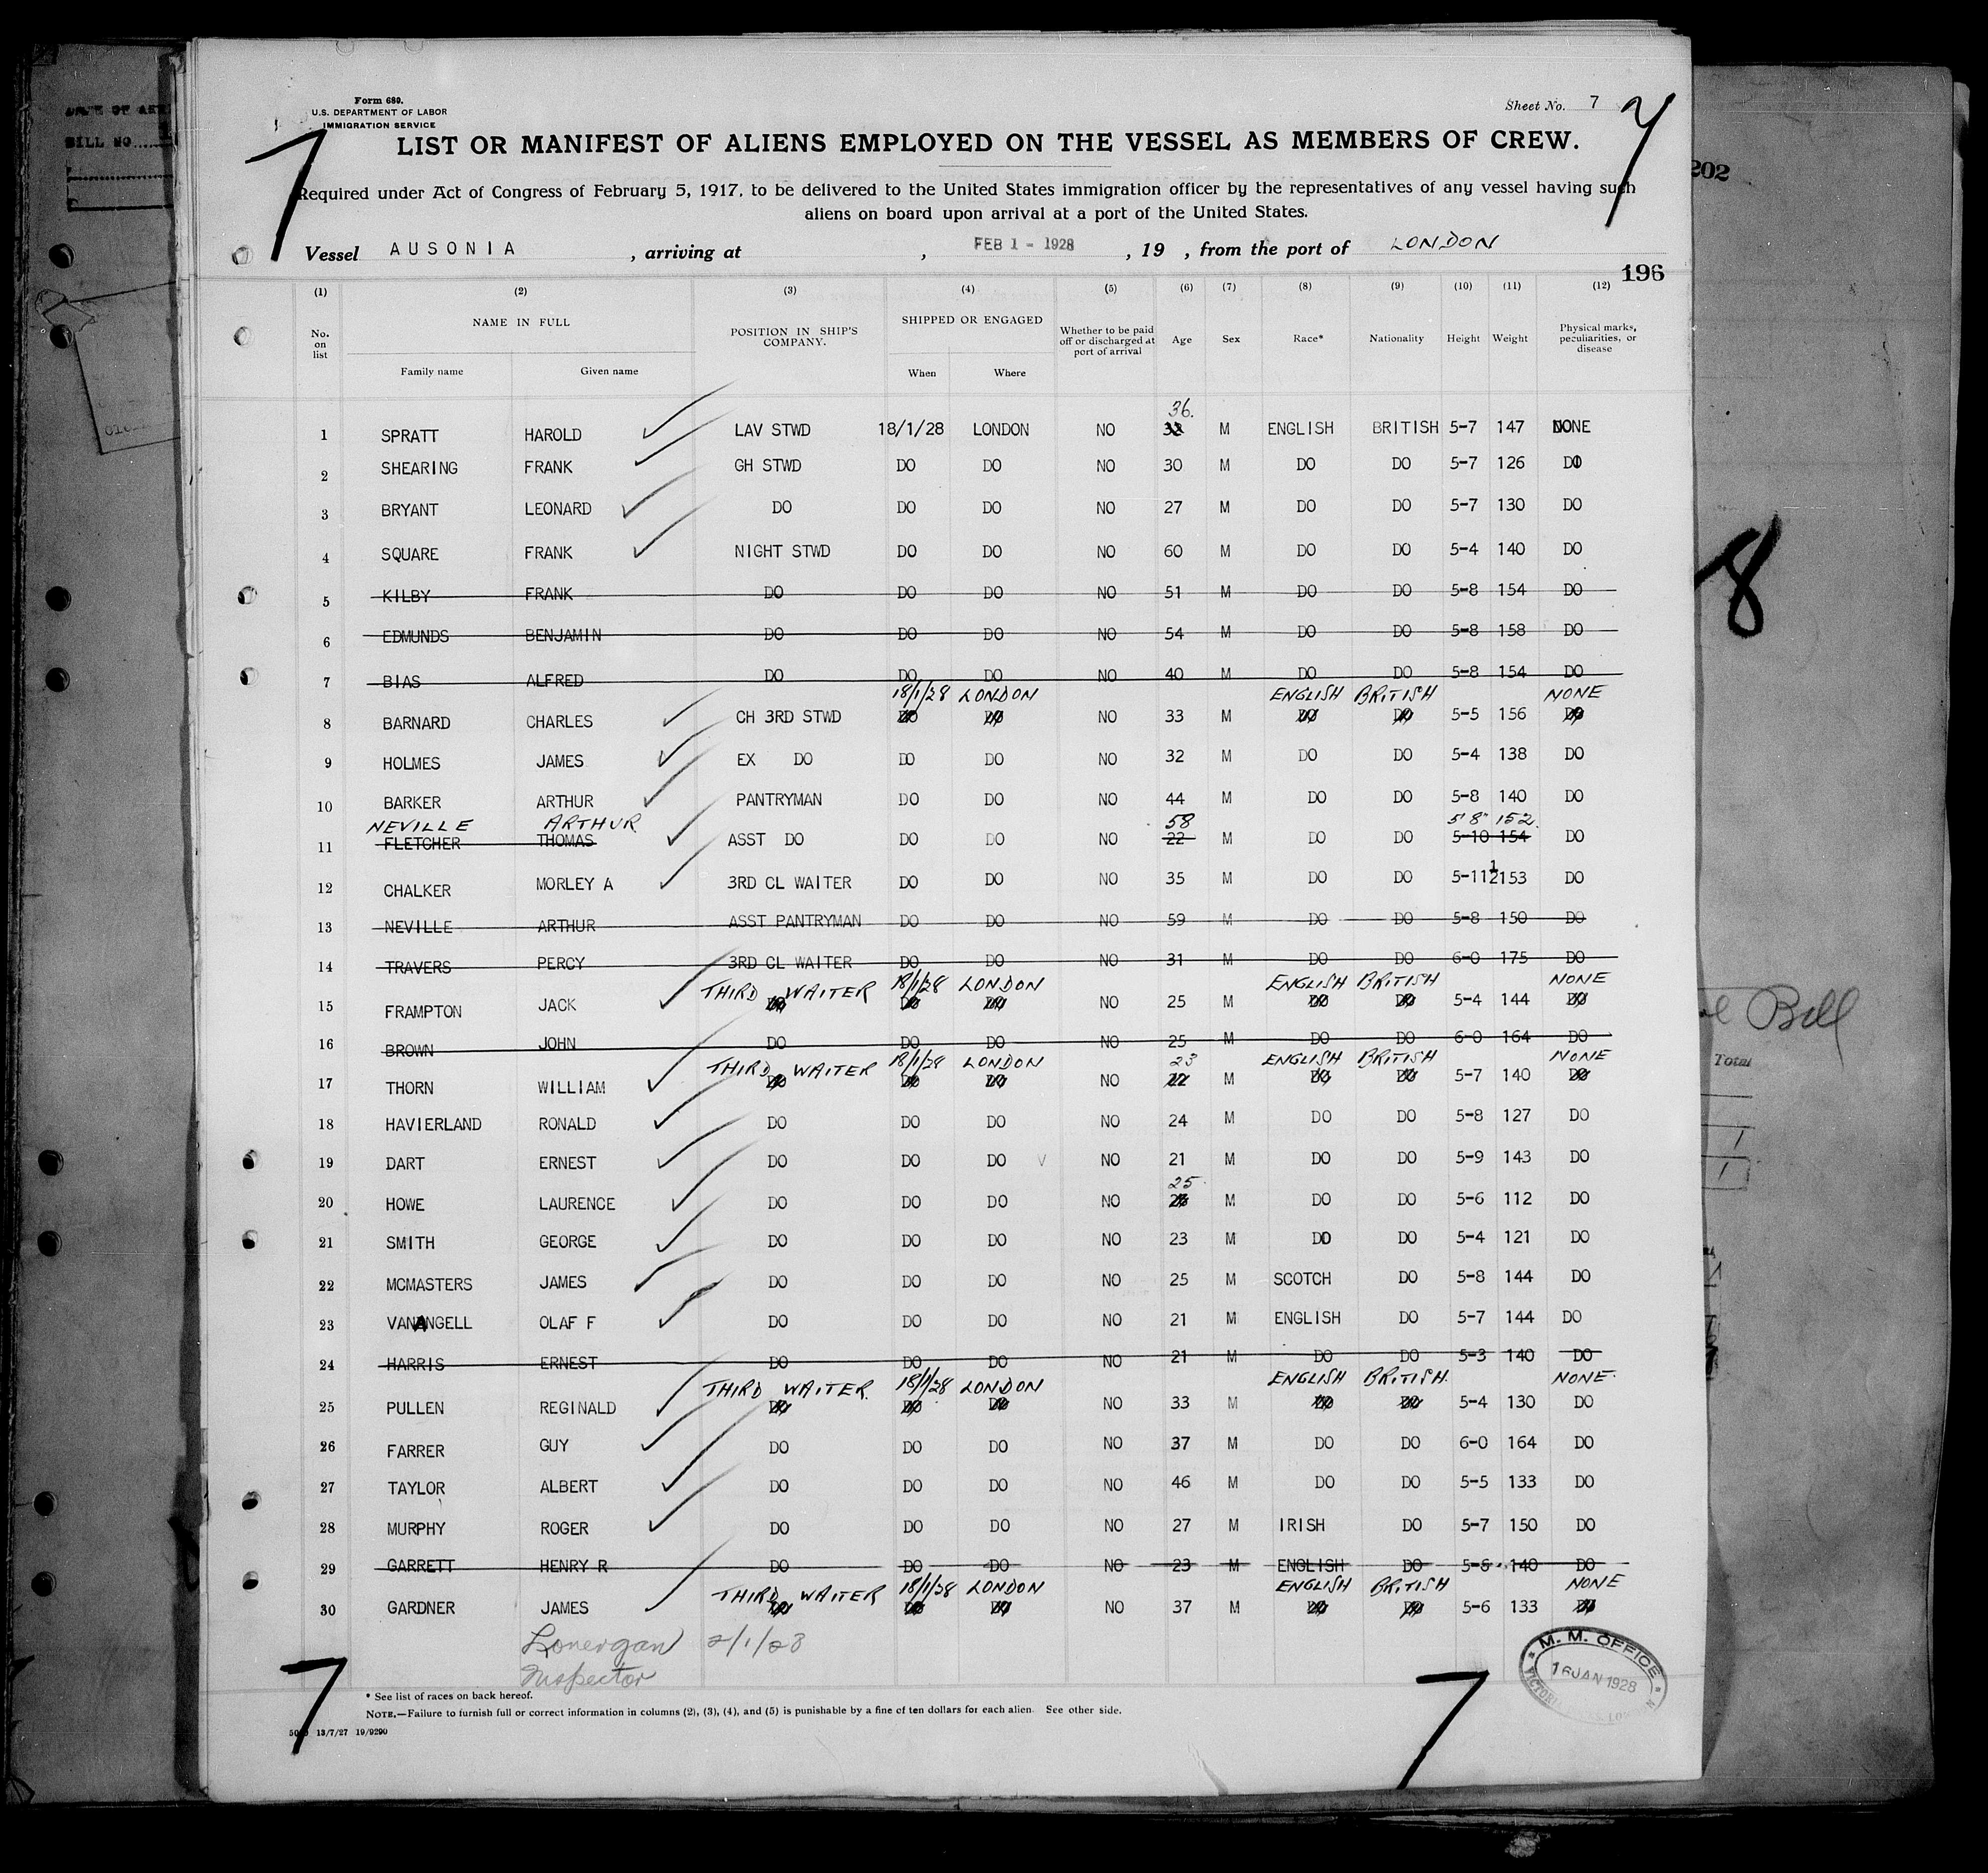 Form 680.
U.S. DEPARTMENT OF LABOR
IMMIGRATION SERVICE
Sheet No. 7
7
7
LIST OR MANIFEST OF ALIENS EMPLOYED ON THE VESSEL AS MEMBERS OF CREW.
Required under Act of Congress of February 5, 1917, to be delivered to the United States immigration officer by the representatives of any vessel having such
aliens on board upon arrival at a port of the United States.
Vessel AUSONIA , arriving at , FEB 1 - 1928 , 19 , from the port of LONDON
196
202
(1) (2) (3) (4) (5) (6) (7) (8) (9) (10) (11) (12)
No. on list NAME IN FULL Family name Given name POSITION IN SHIP'S COMPANY. SHIPPED OR ENGAGED When Where Whether to be paid off or discharged at port of arrival Age Sex Race* Nationality Height Weight Physical marks, peculiarities, or disease
36.
1 SPRATT HAROLD LAV STWD 18/1/28 LONDON NO 33 M ENGLISH BRITISH 5-7 147 NONE
2 SHEARING FRANK GH STWD DO DO NO 30 M DO DO 5-7 126 DO
3 BRYANT LEONARD DO DO DO NO 27 M DO DO 5-7 130 DO
4 SQUARE FRANK NIGHT STWD DO DO NO 60 M DO DO 5-4 140 DO
5 KILBY FRANK DO DO DO NO 51 M DO DO 5-8 154 DO
6 EDMUNDS BENJAMIN DO DO DO NO 54 M DO DO 5-8 158 DO
7 BIAS ALFRED DO DO DO NO 40 M DO DO 5-8 154 DO
18/1/28 LONDON ENGLISH BRITISH NONE
8 BARNARD CHARLES CH 3RD STWD DO DO NO 33 M DO DO 5-5 156 DO
9 HOLMES JAMES EX DO DO DO NO 32 M DO DO 5-4 138 DO
10 BARKER ARTHUR PANTRYMAN DO DO NO 44 M DO DO 5-8 140 DO
NEVILLE ARTHUR 58 5'8" 152.
11 FLETCHER THOMAS ASST DO DO DO NO 22 M DO DO 5-10 154 DO
12 CHALKER MORLEY A 3RD CL WAITER DO DO NO 35 M DO DO 5-11½ 153 DO
13 NEVILLE ARTHUR ASST PANTRYMAN DO DO NO 59 M DO DO 5-8 150 DO
14 TRAVERS PERCY 3RD CL WAITER DO DO NO 31 M DO DO 6-0 175 DO
THIRD WAITER 18/1/28 LONDON ENGLISH BRITISH NONE
15 FRAMPTON JACK DO DO DO NO 25 M DO DO 5-4 144 DO
16 BROWN JOHN DO DO DO NO 25 M DO DO 6-0 164 DO
THIRD WAITER 18/1/28 LONDON 23 ENGLISH BRITISH NONE
17 THORN WILLIAM DO DO DO NO 22 M DO DO 5-7 140 DO
18 HAVIERLAND RONALD DO DO DO NO 24 M DO DO 5-8 127 DO
19 DART ERNEST DO DO DO NO 21 M DO DO 5-9 143 DO
25
20 HOWE LAURENCE DO DO DO NO M DO DO 5-6 112 DO
21 SMITH GEORGE DO DO DO NO 23 M DO DO 5-4 121 DO
22 MCMASTERS JAMES DO DO DO NO 25 M SCOTCH DO 5-8 144 DO
23 VANANGELL OLAF F DO DO DO NO 21 M ENGLISH DO 5-7 144 DO
24 HARRIS ERNEST DO DO DO NO 21 M DO DO 5-3 140 DO
THIRD WAITER. 18/1/28 LONDON ENGLISH BRITISH. NONE.
25 PULLEN REGINALD DO DO DO NO 33 M DO DO 5-4 130 DO
26 FARRER GUY DO DO DO NO 37 M DO DO 6-0 164 DO
27 TAYLOR ALBERT DO DO DO NO 46 M DO DO 5-5 133 DO
28 MURPHY ROGER DO DO DO NO 27 M IRISH DO 5-7 150 DO
29 GARRETT HENRY R DO DO DO NO 23 M ENGLISH DO 5-6 140 DO
THIRD WAITER 18/1/28 LONDON ENGLISH BRITISH NONE
30 GARDNER JAMES DO DO DO NO 37 M DO DO 5-6 133 DO
Lonergan 2/1/28
Inspector
M. M. OFFICE
16 JAN 1928
7
7
* See list of races on back hereof.
NOTE.—Failure to furnish full or correct information in columns (2), (3), (4), and (5) is punishable by a fine of ten dollars for each alien. See other side.
13/7/27 19/9290
BILL NO
8
Bell
Total